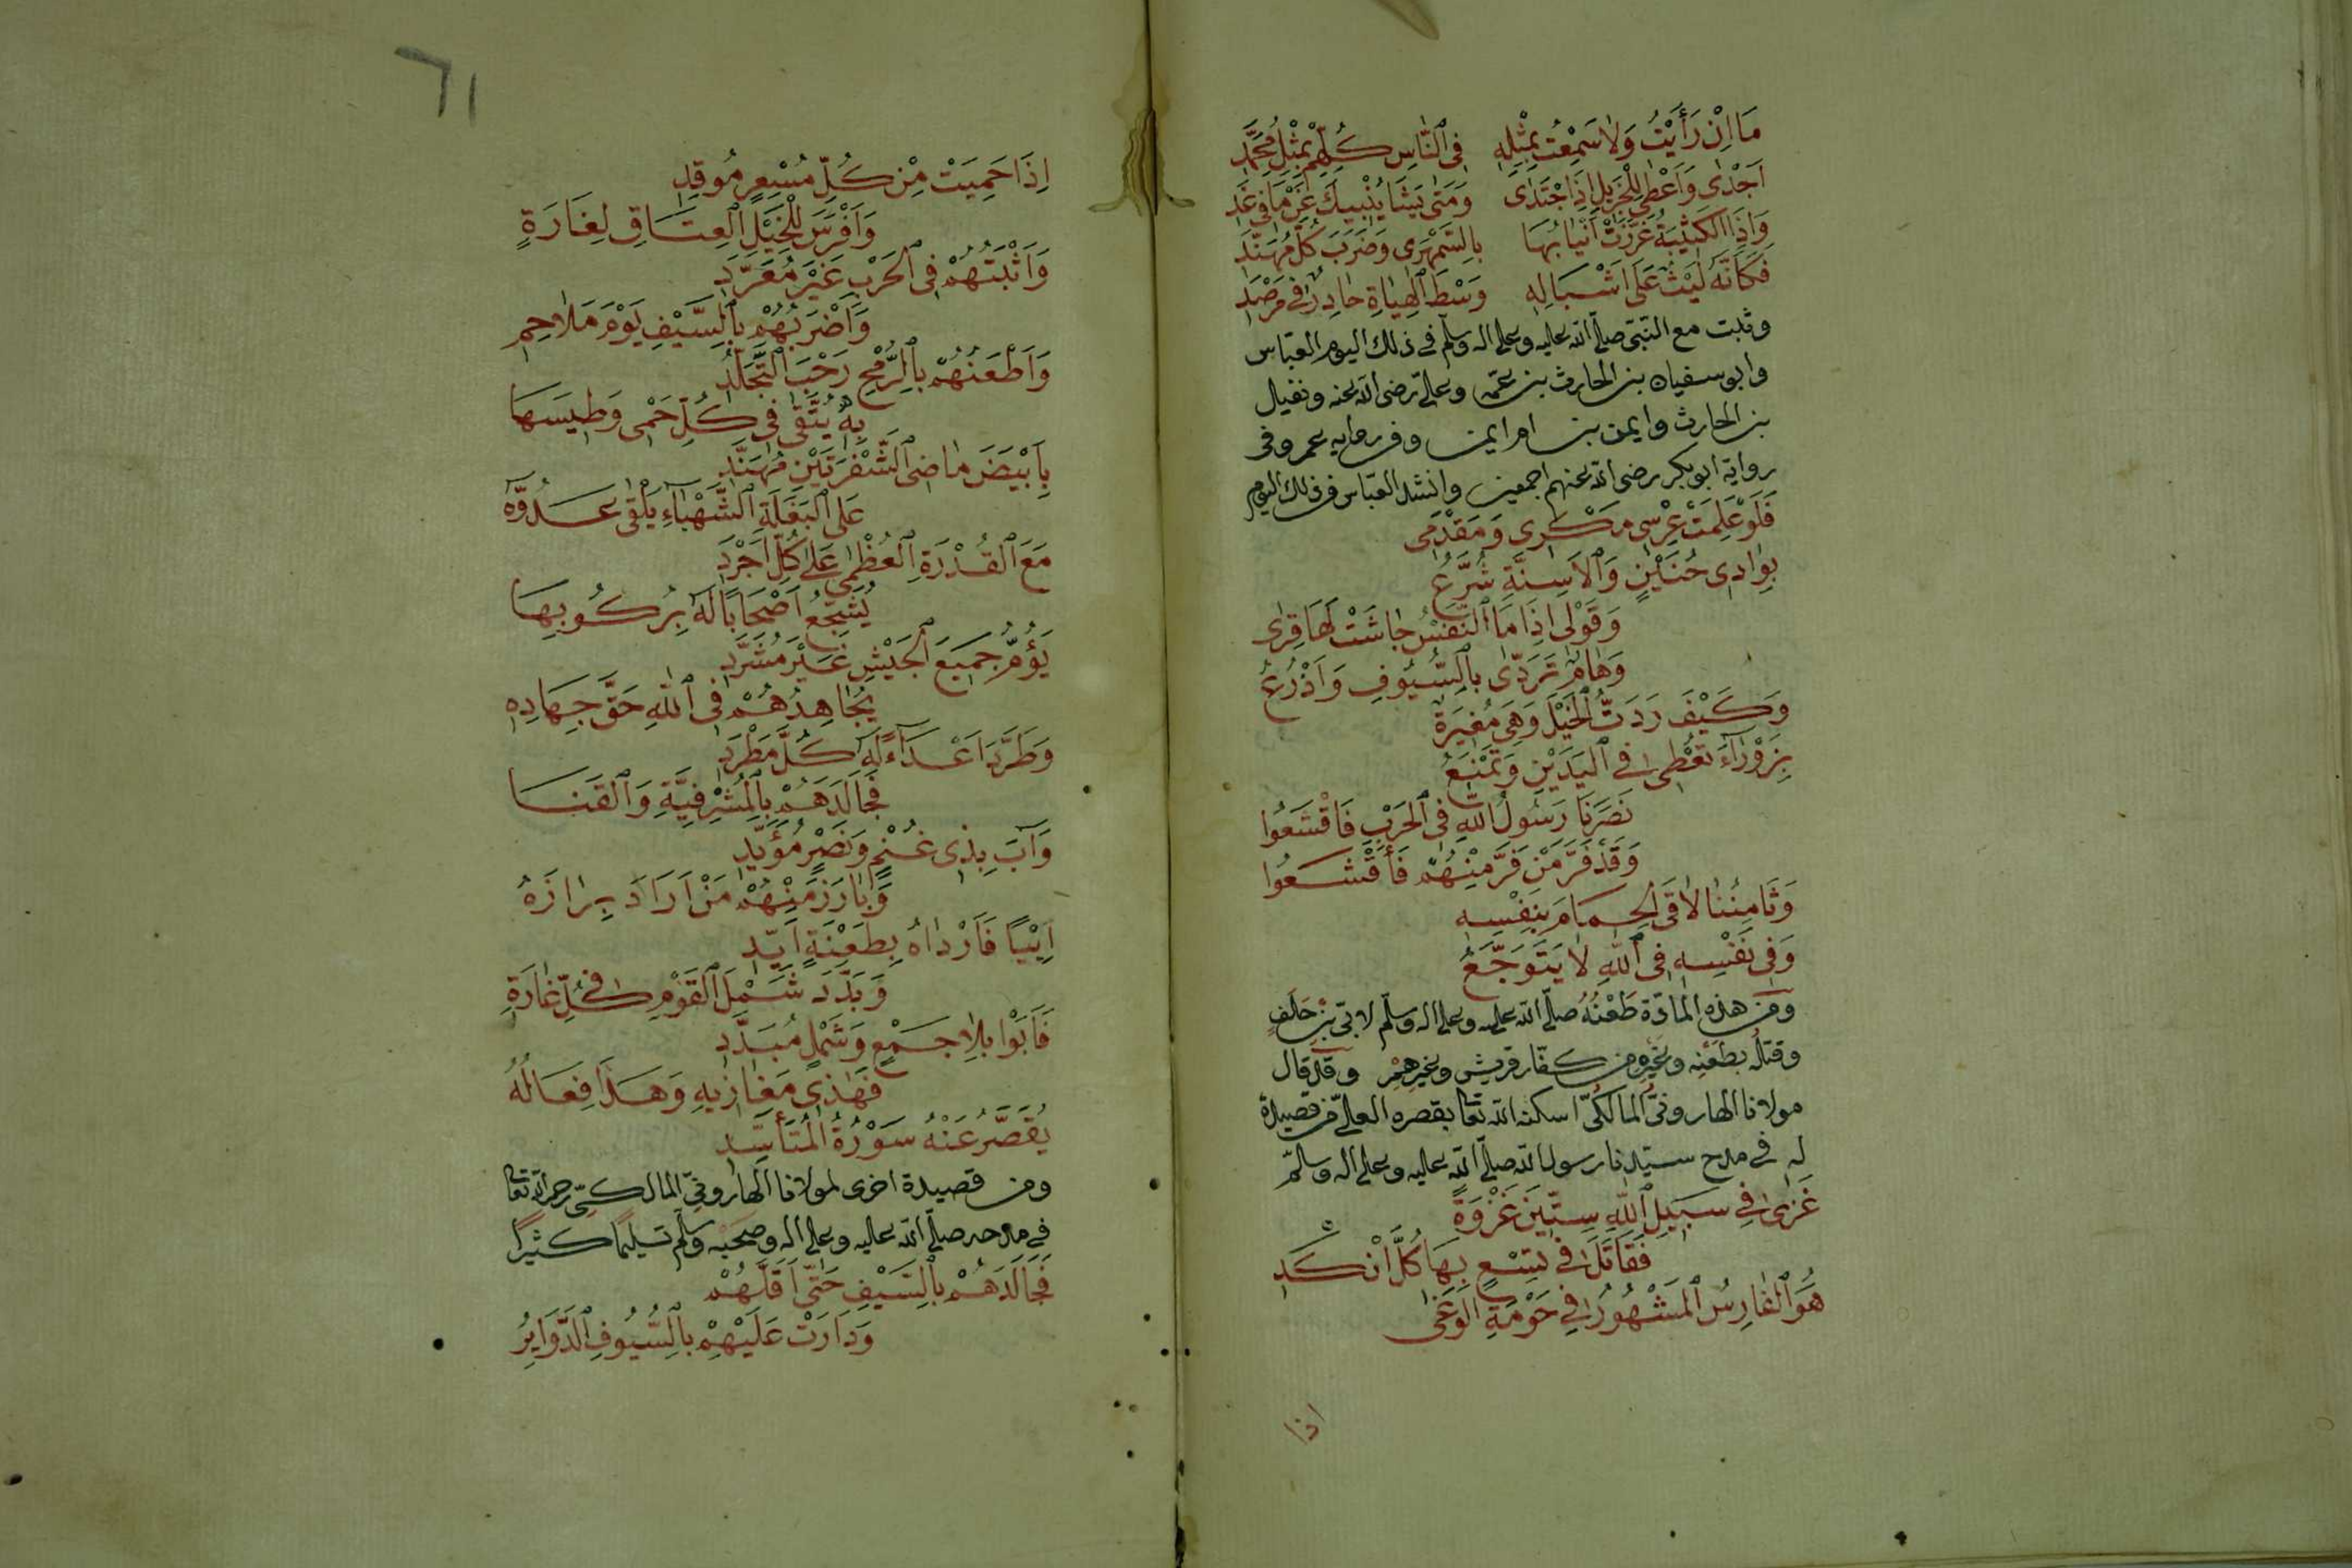 مَا اِنْ رَأَيْتُ وَلَا سَمِعْتُ بِمِثْلِهِ فِى ٱلنَّاسِ كُلِّهِمْ بِمِثْلِ مُحَمَّدِ
اَجْدٰى وَاَعْطٰى لِلْجَزِيلِ اِذَا جْتَدٰى وَمَتٰى يَشَا يُنْبِيكَ عَمَّا فِى غَدِ
وَاِذَا الكَتِيْبَةُ غَرَّزَتْ اَنْيَابُهَا بِالسَّمْهَرِى وَضَرَبَ كُلَّ مُهَنَّدِ
فَكَاَنَّهُ لَيْثٌ عَلَى اَشْبَالِهِ وَسْطَ ٱلْهَبَاةِ خَادِرٌ فِى مَرْصَدِ
وثبت مع النّبىّ صلّى الله عليه وعلى اله وسلّم فى ذلك اليوم العبّاس
وابو سفيان بن الحارث بن عمّه وعلىّ رضى الله عنه ونفيل
بن الحارث وايمن بن ام ايمن وفى رواية عمر وفى
رواية ابو بكر رضى الله عنهم اجمعين وانشد العبّاس فى ذلك اليوم
فَلَوْ عَلِمَتْ عِرْسِى مَكْرِى وَمَقْدَمِى
بِوَادِى حُنَيْنٍ وَٱلْاَسِنَّةِ شُرَّعُ
وَقَوْلِى اِذَا مَا ٱلنَّفْسُ جَاشَتْ لَهَا قِرِى
وَهَامٌ تَرَدّٰى بِالسُّيُوفِ وَاَذْرُعُ
وَكَيْفَ رَدَدتُّ ٱلْخَيْلَ وَهِىَ مُغِيرَةٌ
بِزَوْرَآءَ تُعْطِى فِى ٱلْيَدَيْنِ وَتَمْنَعُ
نَصَرْنَا رَسُولَ اللهِ فِى ٱلْحَرْبِ فَاقْشَعُوا
وَقَدْ فَرَّ مَنْ فَرَّ مِنْهُمْ فَأَقْشَعُوا
وَثَامِنُنَا لَاقَى الحِمَامَ بِنَفْسِهِ
وَفِى نَفْسِهِ فِى ٱللهِ لَا يَتَوَجَّعُ
ومن هذه المادّة طَعْنُهُ صلّى الله عليه وعلى اله وسلّم لابىّ بن خَلَفٍ
وقتلُه بطعْنِه وغيره من كفّار قريش وغيرهِمْ وقد قال
مولانا الهارونىُّ المالكىُّ اسكنه الله تعا بقصره العلىّ من قصيدة
له فى مدح سيّدنا رسول الله صلّى الله عليه وعلى اله وسلّم
غَزٰى فِى سَبِيلِ ٱللهِ سِتِّينَ غَزْوَةً
فَقَاتَلَ فِى تِسْعٍ بِهَا كُلَّ اَنْكَدِ
هُوَ ٱلْفَارِسُ ٱلْمَشْهُورُ فِى حَوْمَةِ الْوَغٰى
اذا
٦١
اِذَا حَمِيَتْ مِنْ كُلِّ مُسْعِرٍ مُوقِدِ
وَاَفْرَسَ لِلْخَيْلِ ٱلْعِتَاقِ لِغَارَةٍ
وَاَثْبَتُهُمْ فِى ٱلْحَرْبِ غَيْرَ مُعَرَّدِ
وَاَضْرَبُهُمْ بِالسَّيْفِ يَوْمَ مَلَاحِمٍ
وَاَطْعَنُهُمْ بِالرُّمْحِ رَحْبَ ٱلتَّجَلُّدِ
بِهٖ يُتَّقٰى فِى كُلِّ حَمْىٍ وَطِيسَهَا
بِاَبْيَضَ مَاضِى ٱلشَّفْرَتَيْنِ مُهَنَّدِ
عَلَى ٱلْبَغْلَةِ ٱلشَّهْبَآءِ يَلْقٰى عَدُوَّهُ
مَعَ ٱلْقُدْرَةِ ٱلْعُظْمٰى عَلٰى كُلِّ اَجْرَدِ
يُشَجِّعُ اَصْحَابًا لَهُ بِرُكُوبِهَا
يَؤُمُّ جَمِيعَ ٱلْجَيْشِ غَيْرَ مُشَرَّدِ
يُجَاهِدُهُمْ فِى ٱللهِ حَقَّ جِهَادِهِ
وَطَرَّدَ اَعْدَآءً لَهُ كُلَّ مَطْرَدِ
فَجَالَدَهُمْ بِالْمُشْرِفِيَّةِ وَٱلْقَنَا
وَآبَ بِذِى غُنْمٍ وَنَصْرٍ مُؤَيَّدِ
وَبَارَزَ مِنْهُمْ مَنْ اَرَادَ بِرَازَهُ
اُبَيًّا فَاَرْدَاهُ بِطَعْنَةِ اَيِّدِ
وَبَدَّدَ شَمْلَ ٱلْقَوْمِ فِى كُلِّ غَارَةٍ
فَآبُوْا بِلَا جَمْعٍ وَشَمْلٍ مُبَدَّدِ
فَهٰذِى مَغَازِيهِ وَهَذَا فِعَالُهُ
يُقَصِّرُ عَنْهُ سَوْرَةُ الْمُتَأَسِّدِ
ومن قصيدة اخرى لمولانا الهارونىّ المالكىّ رحمه الله تعا
فى مدحه صلّى الله عليه وعلى اله وصحبه وسلّم تسليمًا كثيرًا
فَجَالَدَهُمْ بِالسَّيْفِ حَتّٰى اَقَلَّهُمْ
وَدَارَتْ عَلَيْهِمْ بِالسُّيُوفِ ٱلدَّوَايِرُ